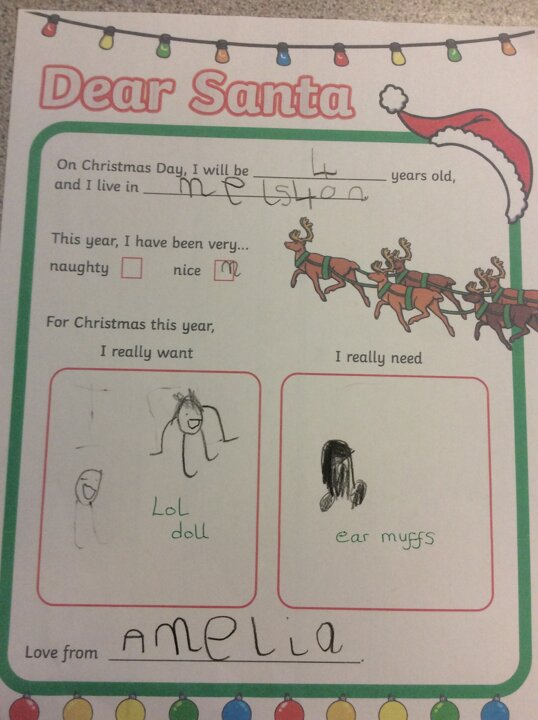 Dear Santa
On Christmas Day, I will be 4 years old,
and I live in nelston
This year, I have been very...
naughty nice
For Christmas this year,
I really want
I really need
LoL
doll
ear muffs
Love from AmeLia.